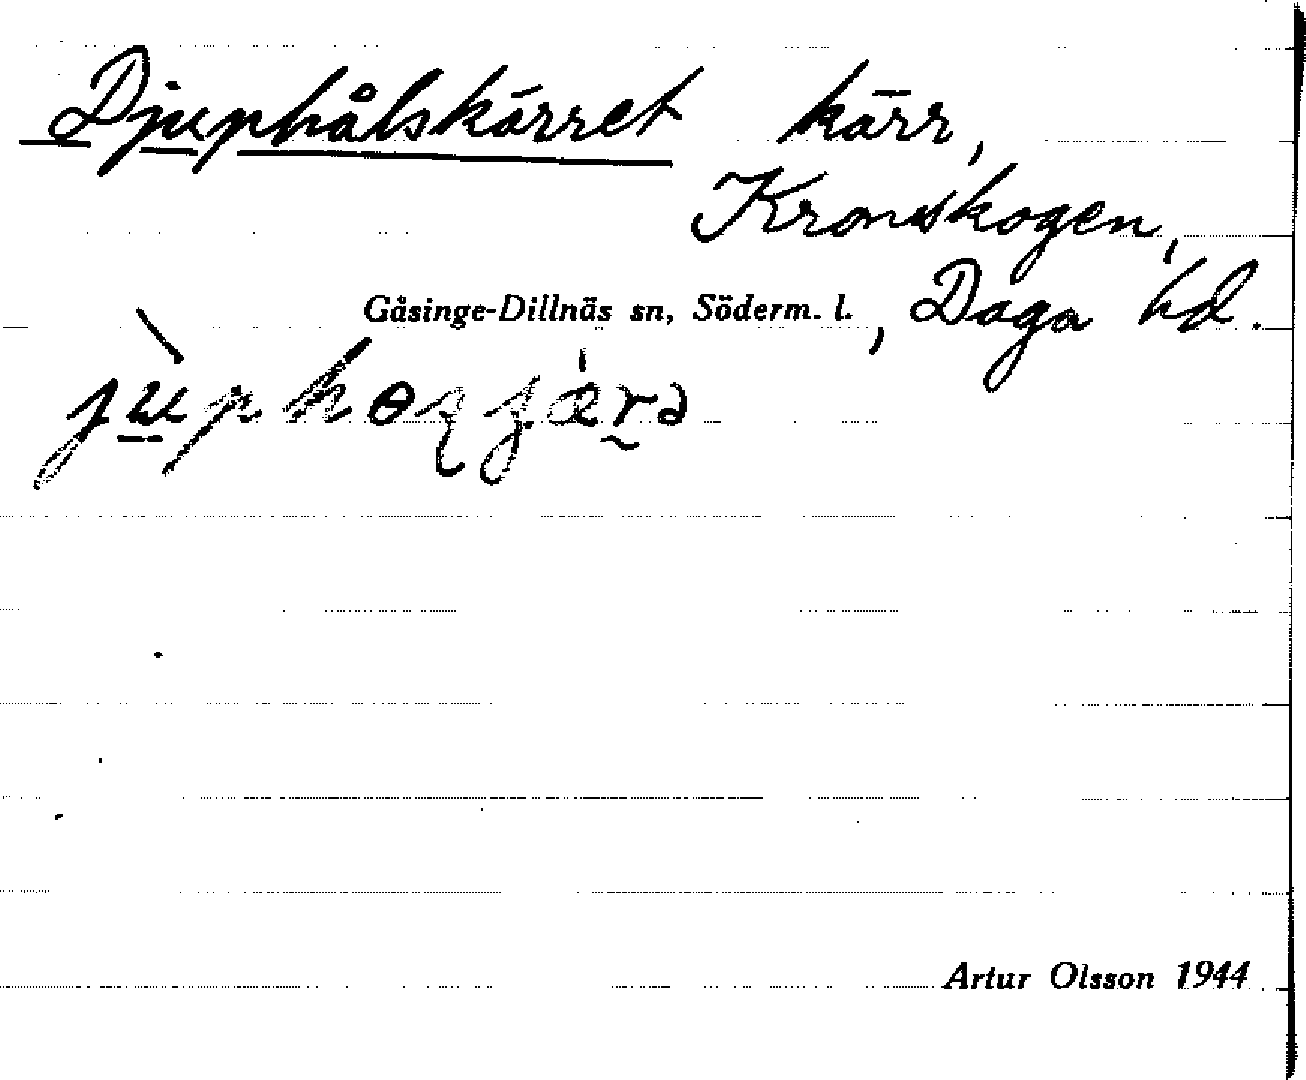 Djuphålskärret kärr,
Kronskogen,
Gåsinge-Dillnäs sn, Söderm. l., Daga hd.
Artur Olsson 1944